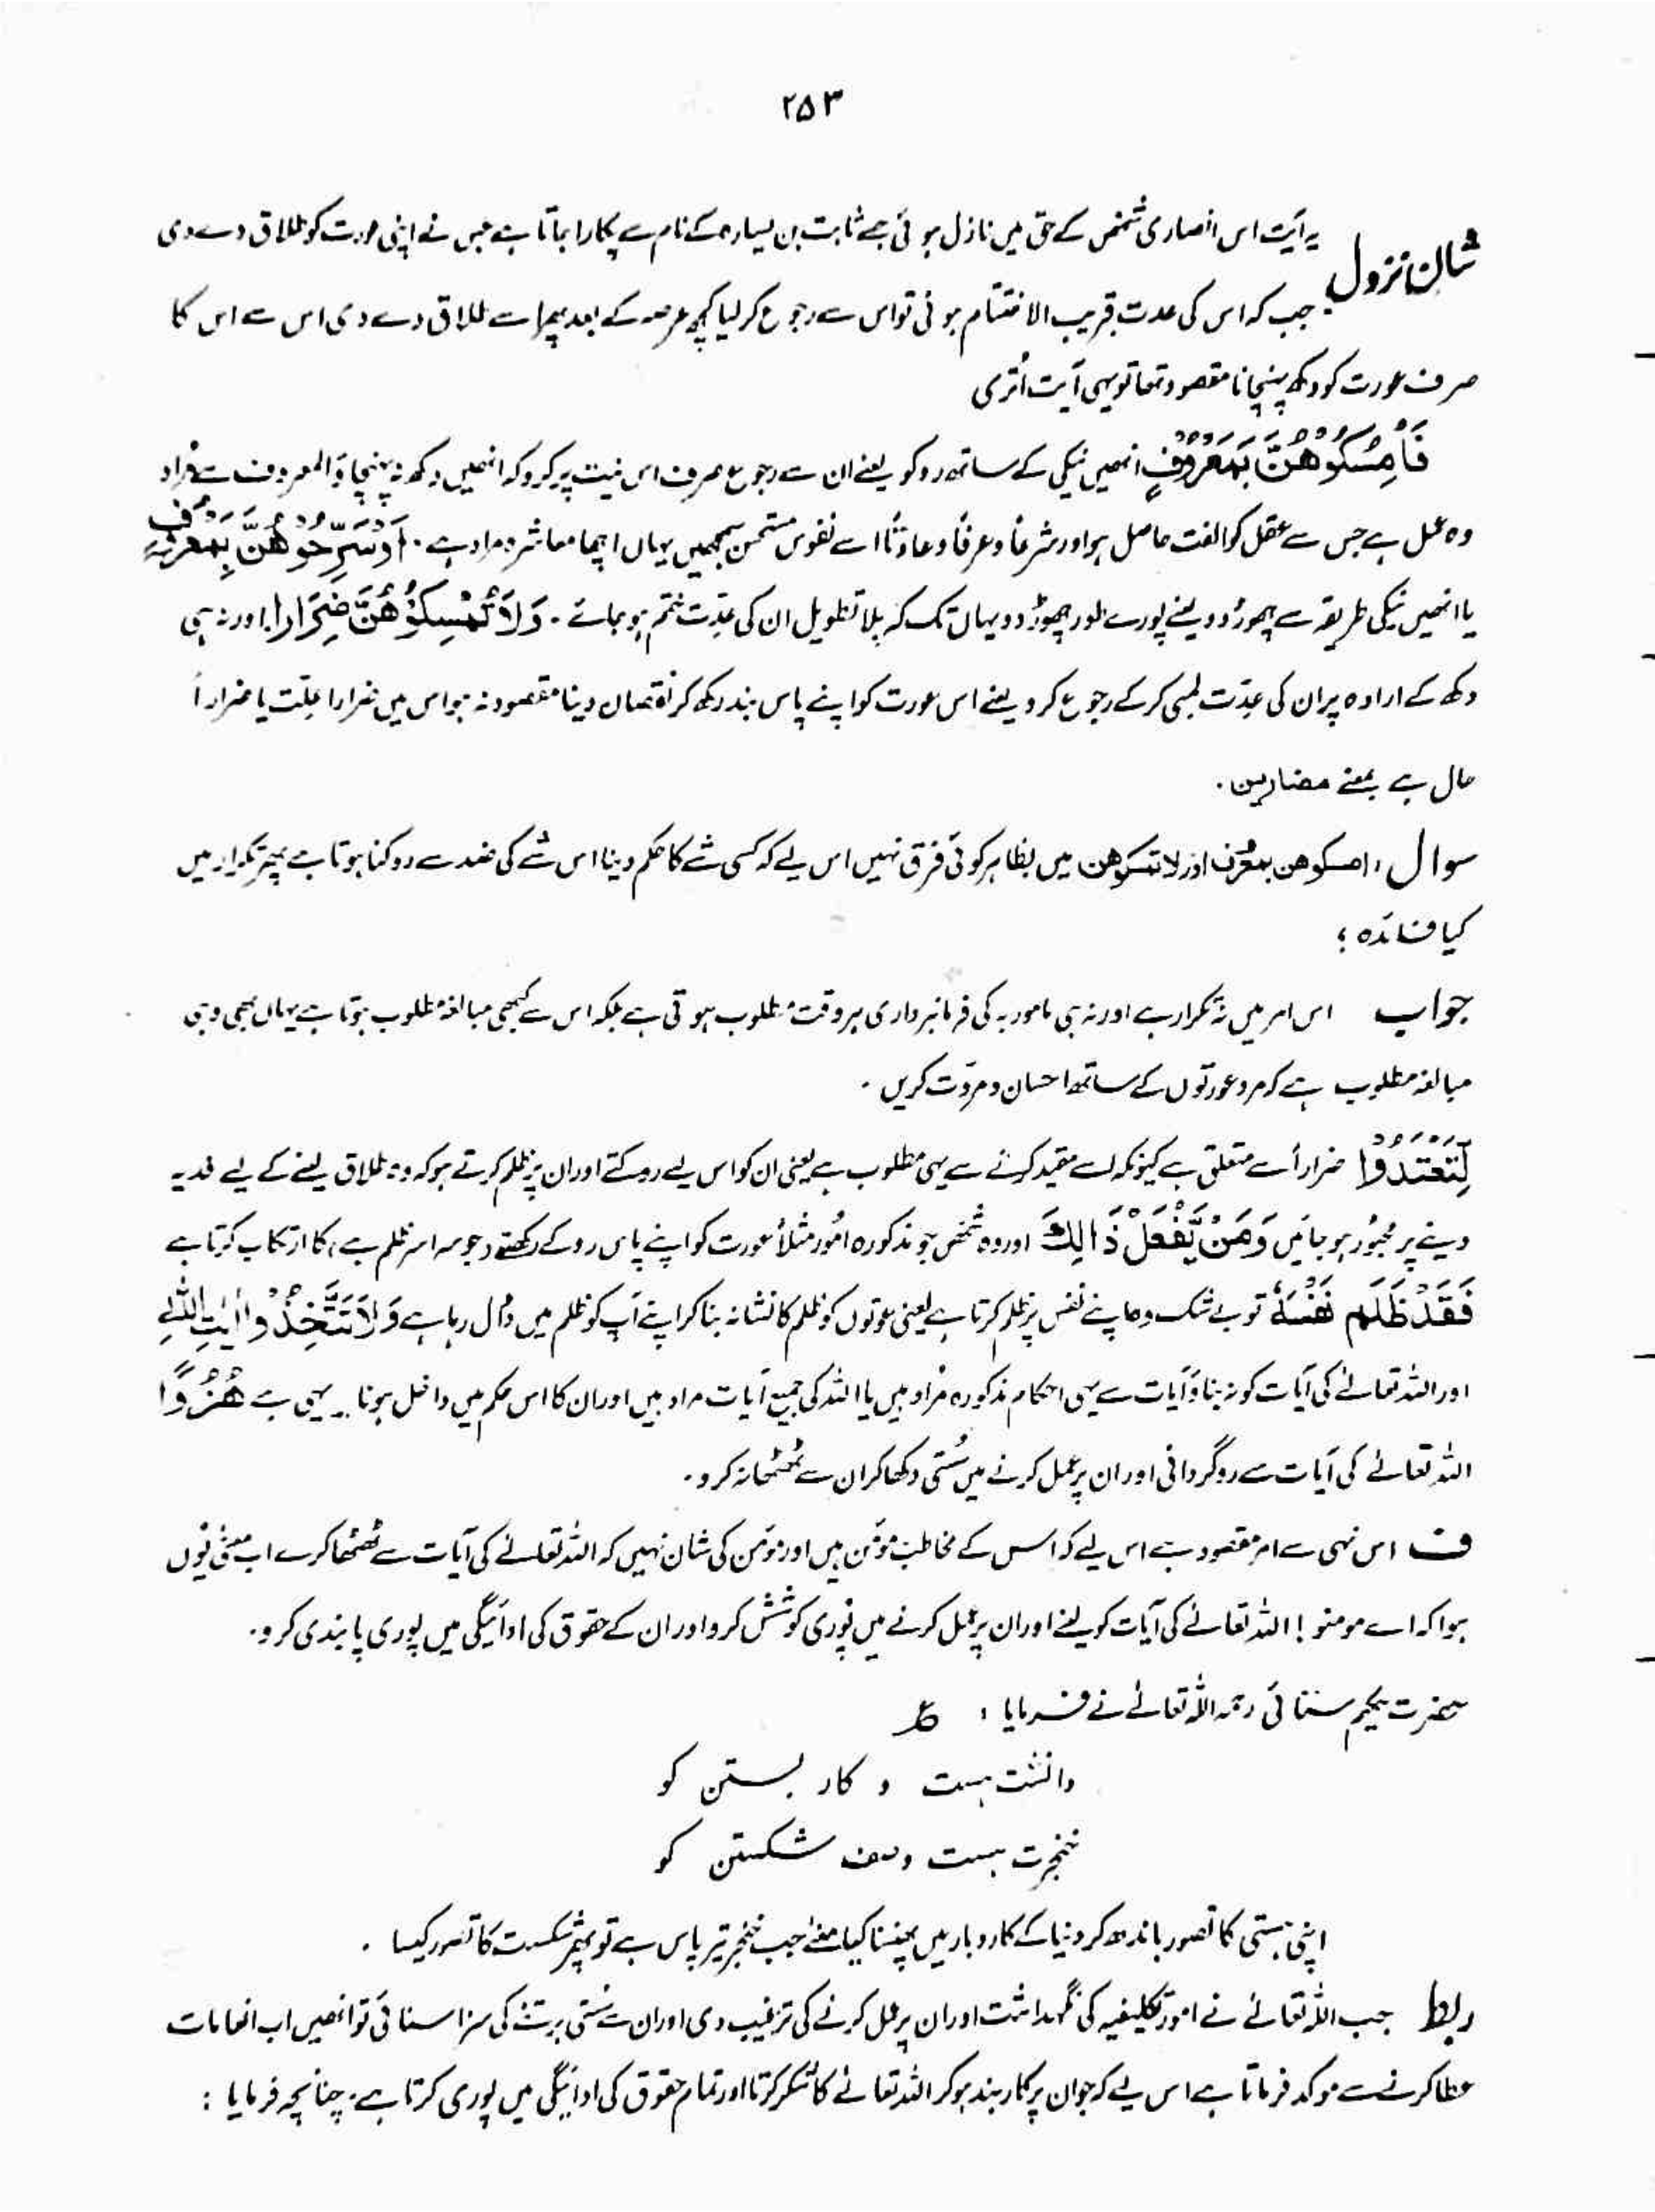 ۲۵۳
شان نزول یہ آیت اس انصاری شخص کے حق میں نازل ہوئی جسے ثابت بن یسارہ کے نام سے پکارا جاتا ہے جس نے اپنی عورت کو طلاق دے دی
جب کہ اس کی عدت قریب الاختتام ہوئی تو اس سے رجوع کر لیا کچھ عرصہ کے بعد پھر اسے طلاق دے دی اس سے اس کا
صرف عورت کو دکھ پہنچانا مقصود تھا تو یہی آیت اُتری
فَأَمْسِكُوْهُنَّ بِمَعْرُوْفٍ انھیں نیکی کے ساتھ روکو یعنے ان سے رجوع صرف اس نیت پر کرو کہ انھیں دکھ نہ پہنچاؤ المعروف سے مُراد
وہ عمل ہے جس سے عقل کو الفت حاصل ہو اور شرعاً و عرفاً و عادتاً اسے نفوس مستحسن سمجھیں یہاں اچھا معاشرہ مراد ہے ۔ أَوْ سَرِّحُوْهُنَّ بِمَعْرُوْفٍ
یا انھیں نیکی طریقہ سے چھوڑ دو یعنے پورے طور چھوڑ دو یہاں تک کہ بلا تطویل ان کی عدّت ختم ہو جائے ۔ وَلَا تُمْسِكُوْهُنَّ ضِرَارًا اور نہ ہی
دکھ کے ارادہ پر ان کی عدّت لمبی کر کے رجوع کرو یعنے اس عورت کو اپنے پاس بند رکھ کر نقصان دینا مقصود نہ ہو اس میں ضرارا علّت یا ضراراً
حال ہے بمعنے مضارین ۔
سوال : امسکوھن بمعرف اور لا تمسکوھن میں بظاہر کوئی فرق نہیں اس لیے کہ کسی شے کا حکم دینا اس شے کی ضد سے روکنا ہوتا ہے پھر تکرار میں
کیا فائدہ ؟
جواب اس امر میں نہ تکرار ہے اور نہ ہی مامور بہ کی فرمانبرداری ہر وقت مطلوب ہوتی ہے بلکہ اس سے کبھی مبالغہ مطلوب ہوتا ہے یہاں بھی وہی
مبالغہ مطلوب ہے کہ مرد عورتوں کے ساتھ احسان و مروّت کریں ۔
لِّتَعْتَدُوْا ضراراً سے متعلق ہے کیونکہ اسے مقید کرنے سے یہی مطلوب ہے یعنی ان کو اس لیے روکتے اور ان پر ظلم کرتے ہو کہ وہ طلاق لینے کے لیے فدیہ
دینے پر مجبُور ہو جائیں وَمَنْ يَّفْعَلْ ذَالِكَ اور وہ شخص جو مذکورہ اُمور مثلاً عورت کو اپنے پاس روکے رکھنے (جو سراسر ظلم ہے) کا ارتکاب کرتا ہے
فَقَدْ ظَلَمَ نَفْسَهٗ تو بے شک وہ اپنے نفس پر ظلم کرتا ہے یعنی عوتوں کو ظلم کا نشانہ بنا کر اپنے آپ کو ظلم میں ڈال رہا ہے وَلَا تَتَّخِذُوْا اٰيٰتِ اللّٰهِ
اور اللہ تعالےٰ کی آیات کو نہ بناؤ آیات سے یہی احکام مذکورہ مُراد ہیں یا اللہ کی جمیع آیات مراد ہیں اور ان کا اس حکم میں داخل ہونا یہی ہے هُزُوًا
اللہ تعالےٰ کی آیات سے روگردانی اور ان پر عمل کرنے میں سُستی دکھا کر ان سے ٹھٹھا نہ کرو ۔
ف اس نہی سے امر مقصود ہے اس لیے کہ اس کے مخاطب مؤمن ہیں اور مؤمن کی شان نہیں کہ اللہ تعالےٰ کی آیات سے ٹھٹھا کرے اب معنیٰ یُوں
ہوا کہ اے مومنو ! اللہ تعالےٰ کی آیات کو لینے اور ان پر عمل کرنے میں پُوری کوشش کرو اور ان کے حقوق کی ادائیگی میں پوری پابندی کرو ۔
حضرت حکیم سنائی رحمہ اللہ تعالےٰ نے فرمایا : ع
دانشت ہست و کار بستن کو
خنجرت ہست وصف شکستن کو
اپنی ہستی کا تصور باندھ کر دنیا کے کاروبار میں پھنسنا کیا معنے جب خنجر تیر پاس ہے تو پھر شکست کا تصور کیسا ۔
ربط جب اللہ تعالےٰ نے امور تکلیفیہ کی نگہداشت اور ان پر عمل کرنے کی ترغیب دی اور ان سے سُستی برتنے کی سزا سنائی تو انھیں اب انعامات
عطا کرنے سے موکد فرماتا ہے اس لیے کہ جو ان پر کاربند ہو کر اللہ تعالےٰ کا شکر کرتا اور تمام حقوق کی ادائیگی میں پوری کرتا ہے ۔ چنانچہ فرمایا :